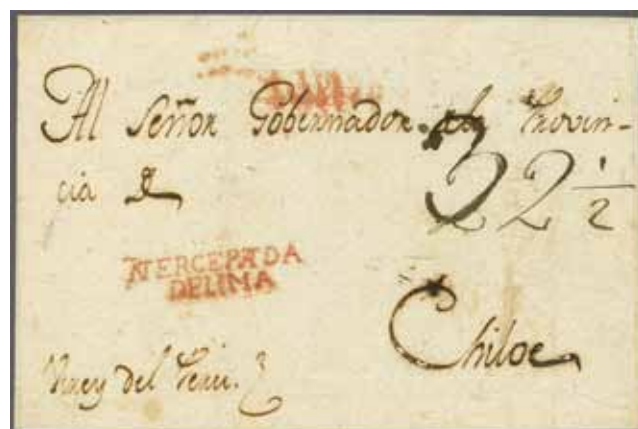 Al Señor Gobernador de la Provin-
cia de
32 1/2
INTERCEPADA
DE LIMA
Chiloe
Virrey del Peru.